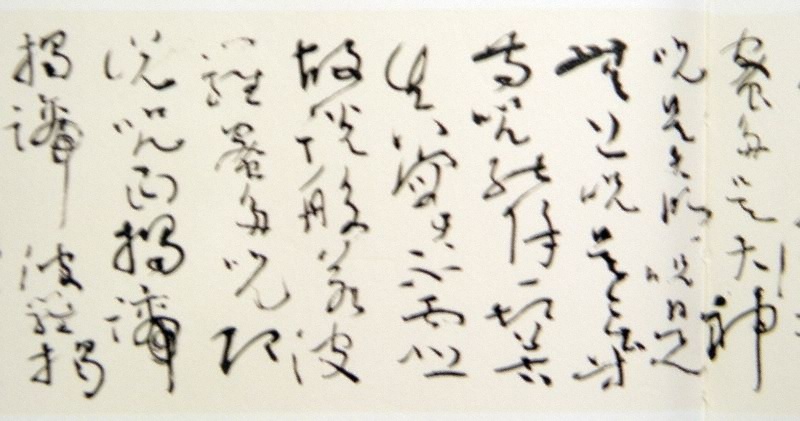 蜜多是大神
咒是大明咒是
無上咒是無等
等咒能除一切苦
真實不虛
故說般若波
羅蜜多咒即
說咒曰揭諦
揭諦 波羅揭